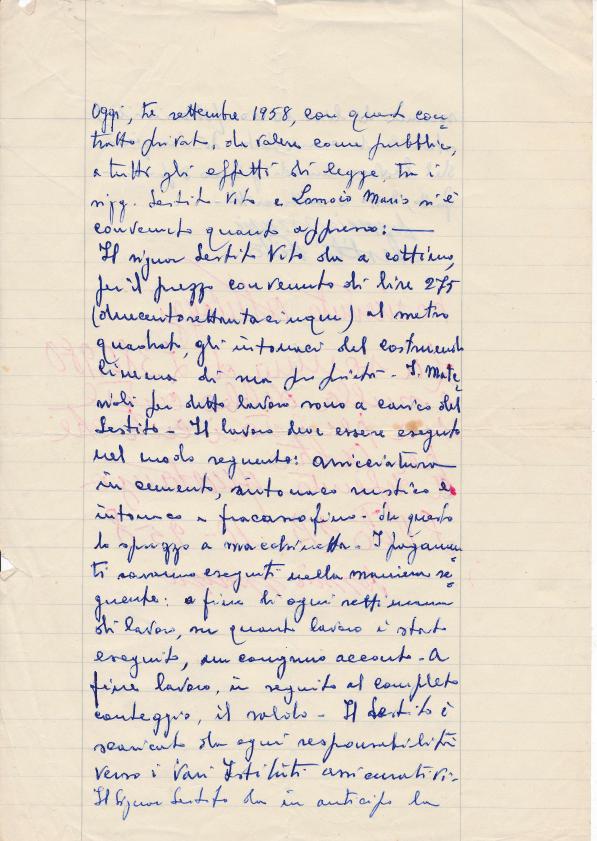 Oggi, tre settembre 1958, con questo con=
tratto privato, da valere come pubblico,
a tutti gli effetti di legge, tra i
sigg. Sestito Vito e Lomoio Mario si è
convenuto quanto appresso: —
Il signor Sestito Vito da a cottimo,
per il prezzo convenuto di lire 275
(duecentosettantacinque) al metro
quadrato, gli intonaci del costruendo
Cinema di sua proprietà - I Mate=
riali per detto lavoro sono a carico del
Sestito - Il lavoro deve essere eseguito
nel modo seguente: arricciatura
in cemento, intonaco rustico e
intonaco a fracasso fino - su questo
lo spruzzo a macchinetta - I pagamen
ti saranno eseguiti nella maniera se=
guente: a fine di ogni settimana
di lavoro, su quanto lavoro è stato
eseguito, un congruo acconto - A
fine lavoro, in seguito al completo
conteggio, il saldo - Il Sestito è
scaricato da ogni responsabilità
verso i Vari Istituti assicurativi -
Il Signor Sestito da in anticipo la